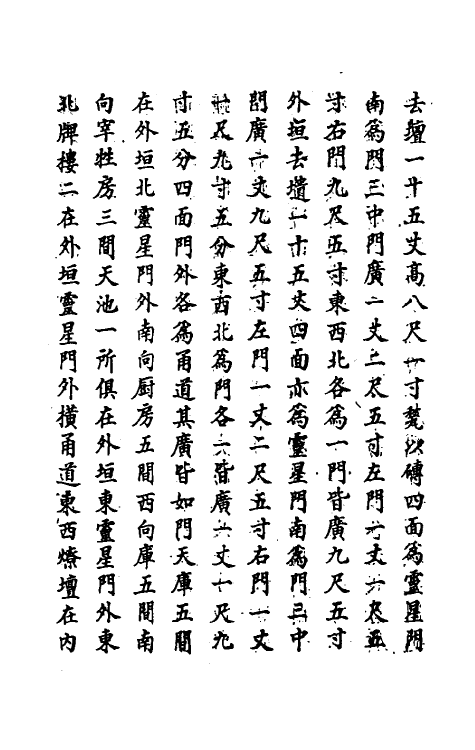 去壇一十五丈高八尺一寸甃以磚四面為靈星門
南為門三中門廣一丈二尺五寸左門一丈一尺五
寸右門九尺五寸東西北各為一門皆廣九尺五寸
外垣去壝一十五丈四面亦為靈星門南為門三中
門廣一丈九尺五寸左門一丈二尺五寸右門一丈
一尺九寸五分東西北為門各一皆廣一丈一尺九
寸五分四面門外各為甬道其廣皆如門天庫五間
在外垣北靈星門外南向厨房五間西向庫五間南
向宰牲房三間天池一所俱在外垣東靈星門外東
北牌樓二在外垣靈星門外橫甬道東西燎壇在內